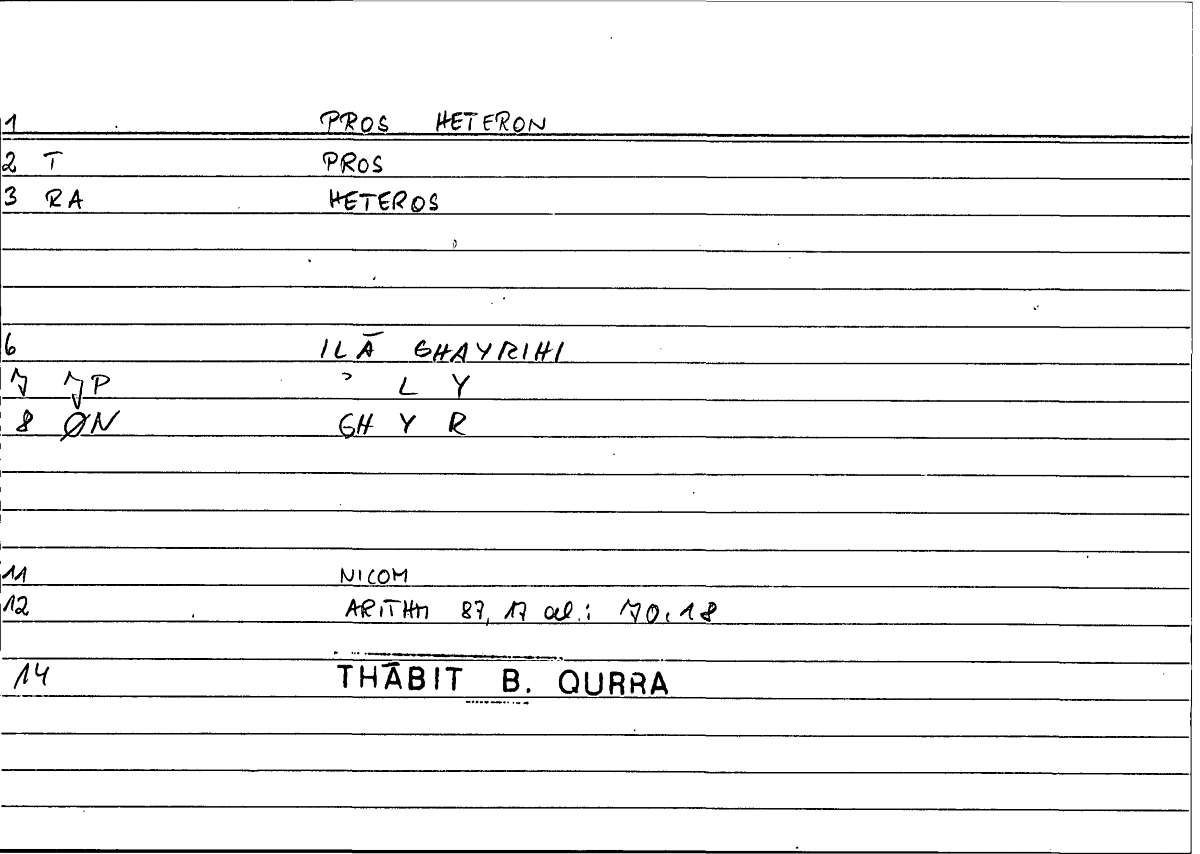 1 PROS HETERON
2 T PROS
3 RA HETEROS
6 ILĀ GHAYRIHI
7 7P ʾ L Y
8 ØN GH Y R
11 NICOM
12 ARITHM 87, 17 al.: 70,18
14 THĀBIT B. QURRA